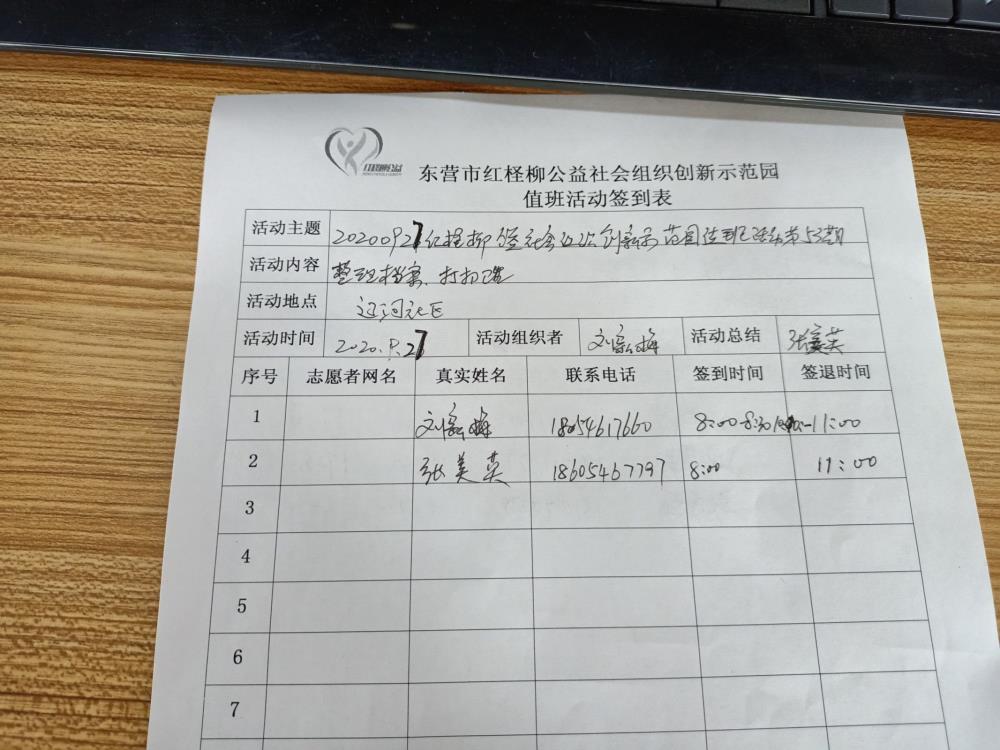 红柽柳公益
东营市红柽柳公益社会组织创新示范园
值班活动签到表
活动主题 20200927红柽柳公益社会组织创新示范园值班活动第53期
活动内容 整理档案、打扫卫生
活动地点 辽河社区
活动时间 2020.9.27 活动组织者 刘 梅 活动总结 张美英
序号 志愿者网名 真实姓名 联系电话 签到时间 签退时间
1 刘 梅 18054617660 8:00 8:30 -11:00
2 张美英 18605467797 8:00 11:00
3
4
5
6
7